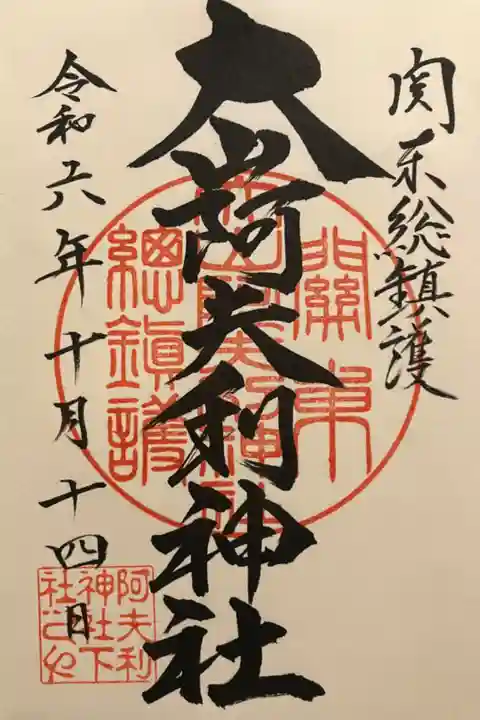 関东総鎮護
大山阿夫利神社
令和六年十月十四日
關東
阿夫利神社
總鎮護
阿夫利
神社下
社